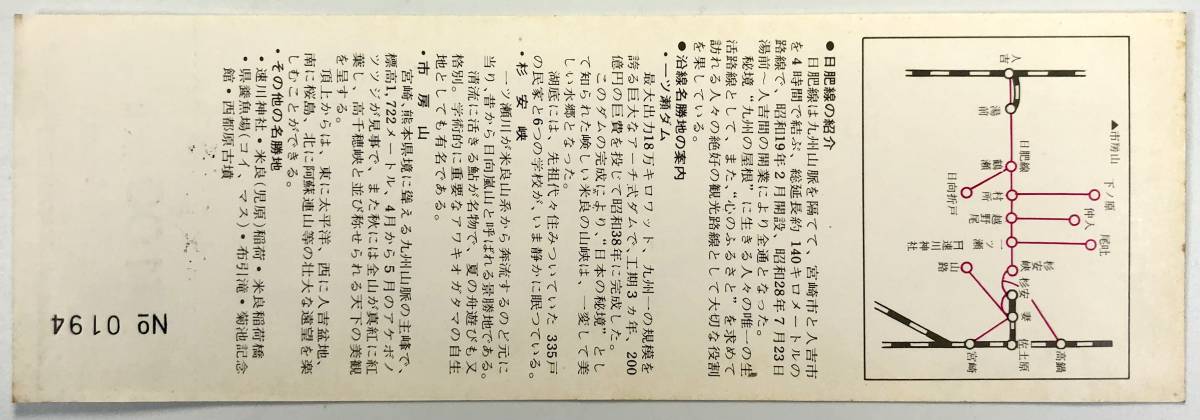 ▲市房山
人吉
湯前
日肥線
鶴瀬
日向折戸
村所
下ノ原
越野尾
仲入
一ッ瀬
日速川神社
尾吐
杉安峡
杉安
山路
妻
佐土原
高鍋
宮崎
●日肥線の紹介
日肥線は九州山脈を隔てて、宮崎市と人吉市
を4時間で結ぶ、総延長約140キロメートルの
路線で、昭和19年2月開設、昭和28年7月23日
湯前〜人吉間の開業により全通となった。
秘境、“九州の屋根”に生きる人々の唯一の生
活路線として、また、“心のふるさと”を求めて
訪れる人々の絶好の観光路線として大切な役割
を果している。
●沿線名勝地の案内
・一ツ瀬ダム
最大出力18万キロワット、九州一の規模を
誇る巨大なアーチ式ダムで、工期3ヵ年、200
億円の巨費を投じて昭和38年に完成した。
このダムの完成により、“日本の秘境”とし
て知られた険しい米良の山峡は、一変して美
しい水郷となった。
湖底には、先祖代々住みついていた335戸
の民家と6つの学校が、いま静かに眠っている。
・杉安峡
一ツ瀬川が米良山系から奔流するのど元に
当り、昔から日向嵐山と呼ばれる景勝地である。
清流に活きる鮎が名物で、夏の舟遊びも又
格別。学術的に重要なアワキオガタマの自生
地としても有名である。
・市房山
宮崎、熊本県境に聳える九州山脈の主峰で、
標高1,722メートル、4月から5月のアケボノ
ツツジが見事で、また秋には全山が真紅に紅
葉し、高千穂峡と並び称せられる天下の美観
を呈する。
頂上からは、東に太平洋、西に人吉盆地、
南に桜島、北に阿蘇連山等の壮大な遠望を楽
しむことができる。
・その他の名勝地
・速川神社・米良(児原)稲荷・米良稲荷橋
・県養魚場(コイ、マス)・布引滝・菊池記念
館・西都原古墳
№ 0194